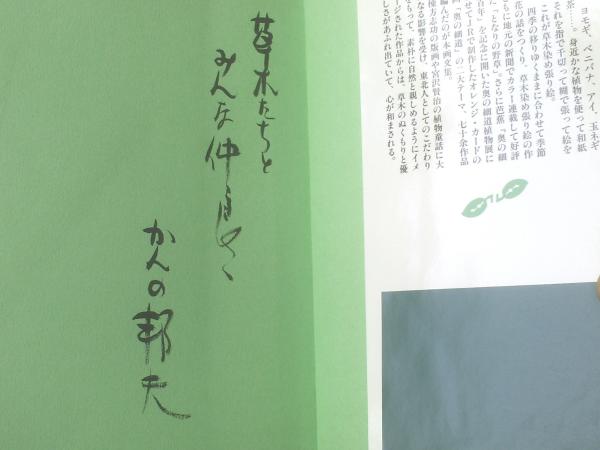 草木たちと
みんな仲良く
かんの邦夫
ヨモギ、ベニバナ、アイ、玉ネギ
茶……。身近かな植物を使って和紙
それを指で千切って糊で張って絵を
これが草木染め張り絵。
四季の移りゆくままに合わせて季節
花の話をつくり、草木染め張り絵の作
もに地元の新聞でカラー連載して好評
た「となりの野草」。さらに芭蕉「奥の細
百年」を記念に開いた奥の細道植物展に
せてJRで制作したオレンジ・カードの
「奥の細道」の二大テーマ、七十余作品
編んだのが本画文集。
棟方志功の版画や宮沢賢治の植物童話に大
なる影響を受け、東北人としてのこだわり
もって、素朴に自然と親しめるようにイメ
ージされた作品からは、草木のぬくもりと優
しさがあふれ出ていて、心が和まされる。